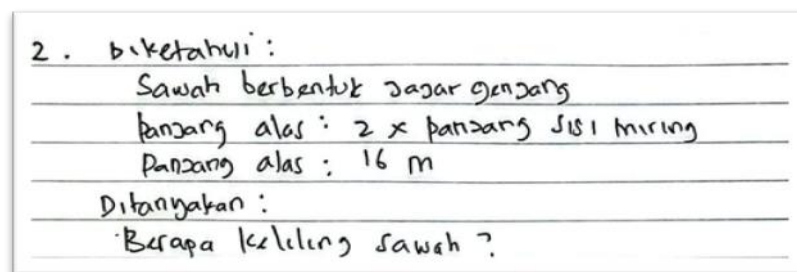 2. Diketahui :
Sawah berbentuk jajar genjang
Panjang alas : 2 x panjang sisi miring
Panjang alas : 16 m
Ditanyakan :
Berapa keliling sawah ?